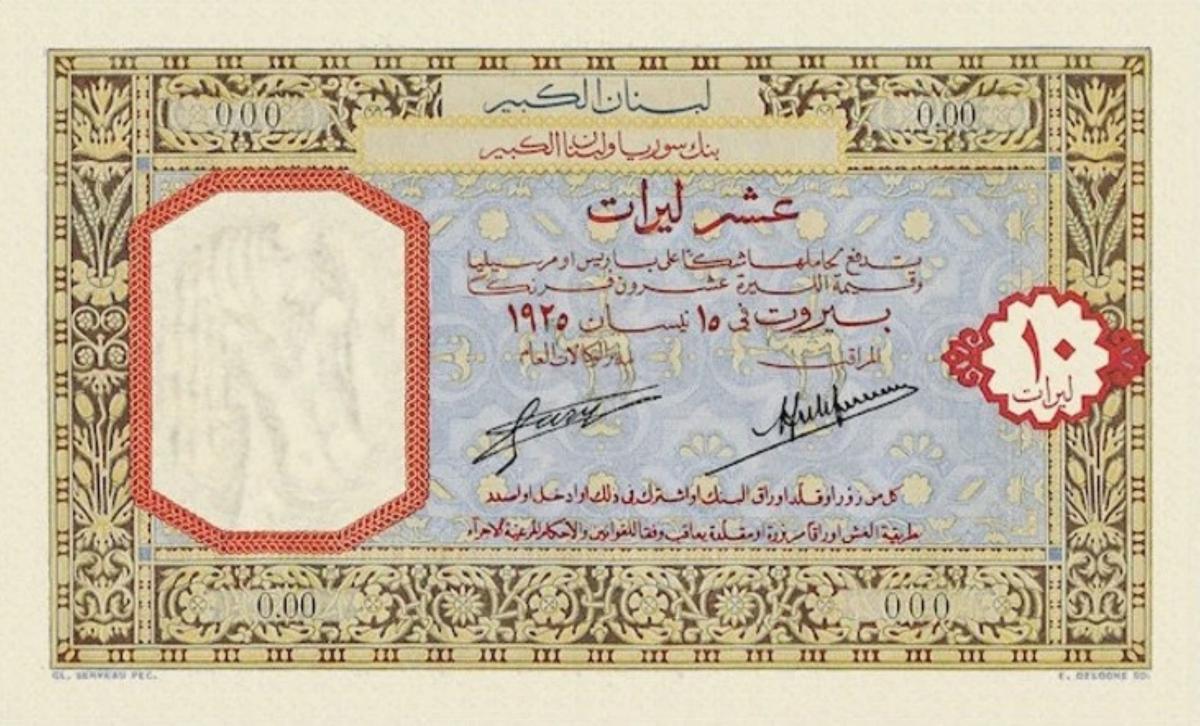 لبنان الكبير
000
0.00
بنك سوريا ولبنان الكبير
عشر ليرات
تدفع لحاملها شكًا على باريس او مرسيليا
وقيمة الليرة عشرون فرنكًا
بيروت في ١٥ نيسان ١٩٢٥
المراقب
مدير الوكالات العام
١٠
ليرات
كل من زور او قلد اوراق البنك او اشترك في ذلك او ادخل او اصدر
بطريقة الغش اوراقًا مزورة او مقلدة يعاقب وفقًا للقوانين والاحكام المرعية الاجراء
0.00
000
CL. SERVEAU FEC.
E. DELOCHE SC.